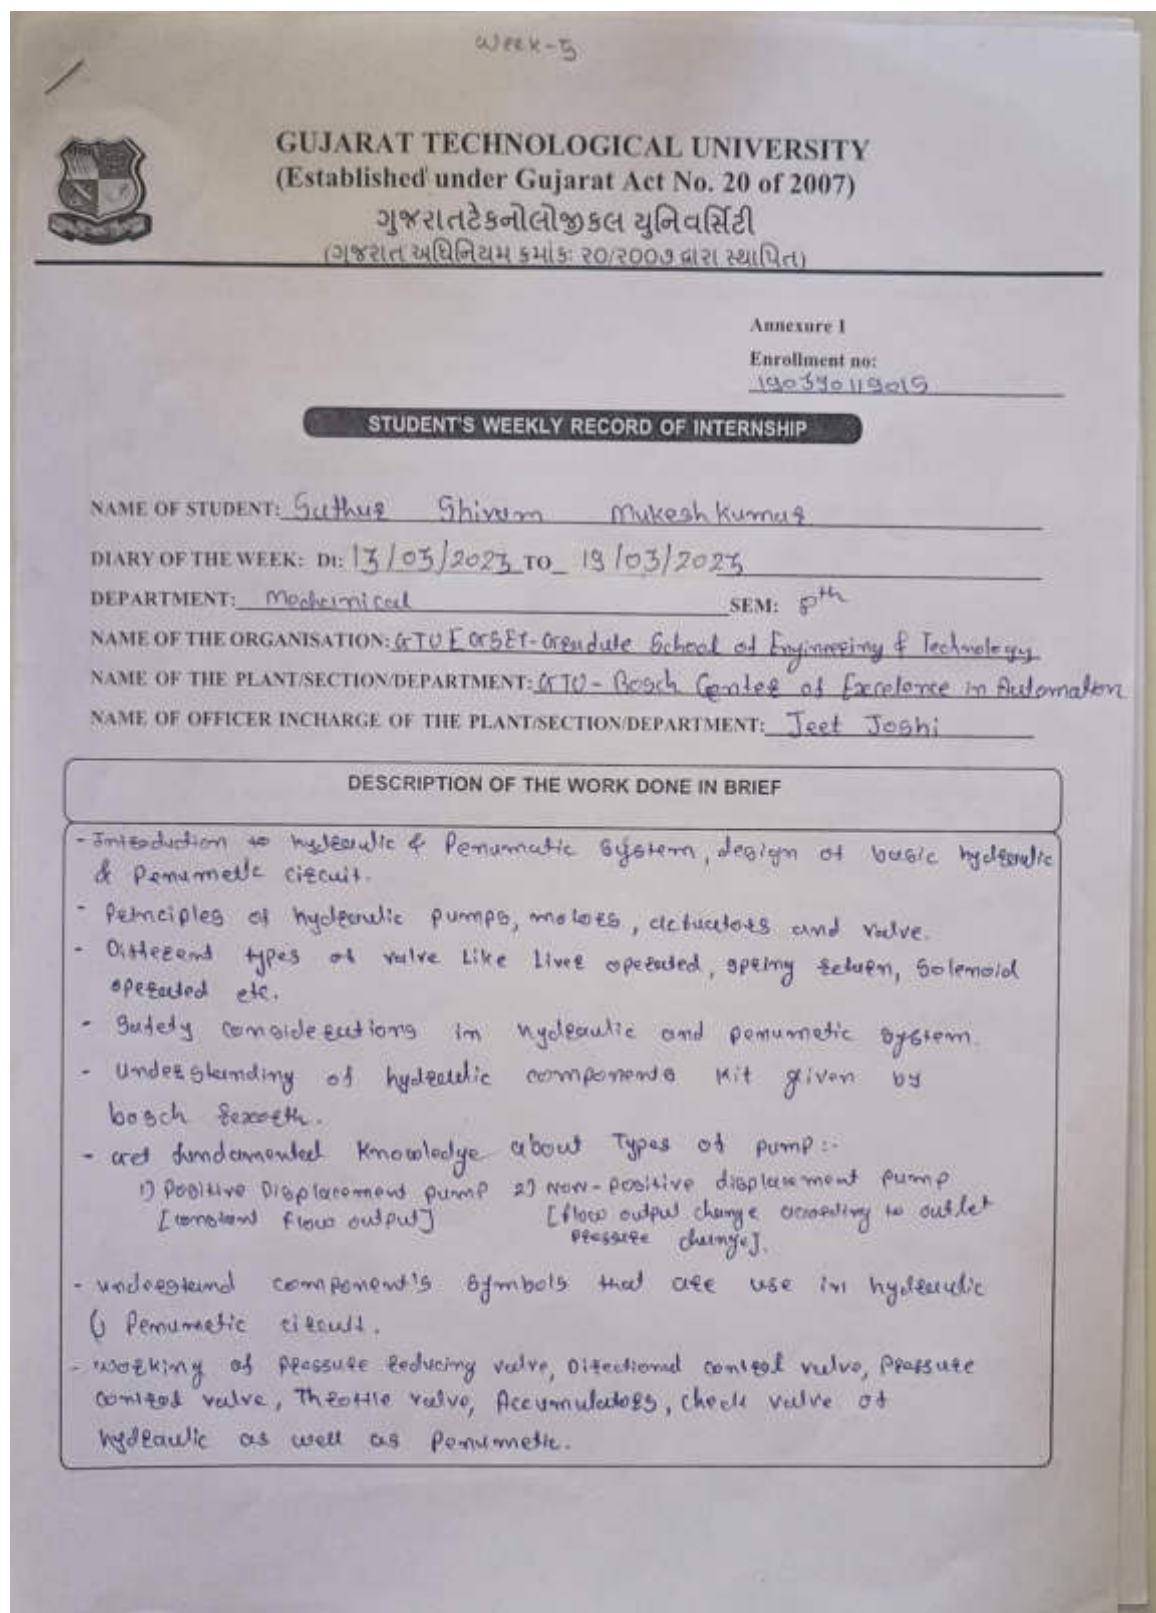 Week-5
GUJARAT TECHNOLOGICAL UNIVERSITY
(Established under Gujarat Act No. 20 of 2007)
ગુજરાતટેકનોલોજીકલ યુનિવર્સિટી
(ગુજરાત અધિનિયમ ક્રમાંકઃ ૨૦/૨૦૦૭ દ્વારા સ્થાપિત)
Annexure 1
Enrollment no:
190390119015
STUDENT'S WEEKLY RECORD OF INTERNSHIP
NAME OF STUDENT: Suthar Shivam Mukeshkumar
DIARY OF THE WEEK: Dt: 13/03/2023 TO 19/03/2023
DEPARTMENT: Mechanical SEM: 8th
NAME OF THE ORGANISATION: GTU [ GSET-Graduate School of Engineering & Technology
NAME OF THE PLANT/SECTION/DEPARTMENT: GTU - Bosch Center of Excelence in Automation
NAME OF OFFICER INCHARGE OF THE PLANT/SECTION/DEPARTMENT: Jeet Joshi
DESCRIPTION OF THE WORK DONE IN BRIEF
- Introduction to hydraulic & Penumatic System, design of basic hydraulic
& Penumetic circuit.
- Principles of hydraulic pumps, motors, actuators and valve.
- Different types of valve Like Liver operated, spring return, Solenoid
operated etc.
- Safety considerations in hydraulic and penumetic system.
- Understanding of hydraulic components Kit given by
bosch rexroth.
- Get fundamental Knowledge about Types of pump:-
1) Positive Displacement pump 2) Non-positive displacement pump
[constant flow output] [flow output change according to outlet
pressure change].
- understand component's symbols that are use in hydraulic
& Penumetic circuit.
- working of pressure reducing valve, Directional control valve, Pressure
control valve, Throttle valve, Accumulators, check valve of
hydraulic as well as Penumetic.